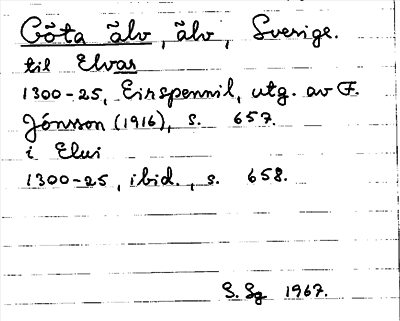 Göta älv, älv, Sverige.
til Elvar
1300-25, Eirspennil, utg. av F.
Jónsson (1916), s. 657.
i Elui
1300-25, ibid., s. 658.
S. Sg 1967.